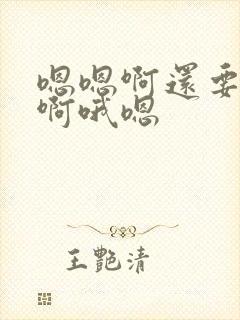 嗯嗯啊還要
啊哦嗯
王艷清